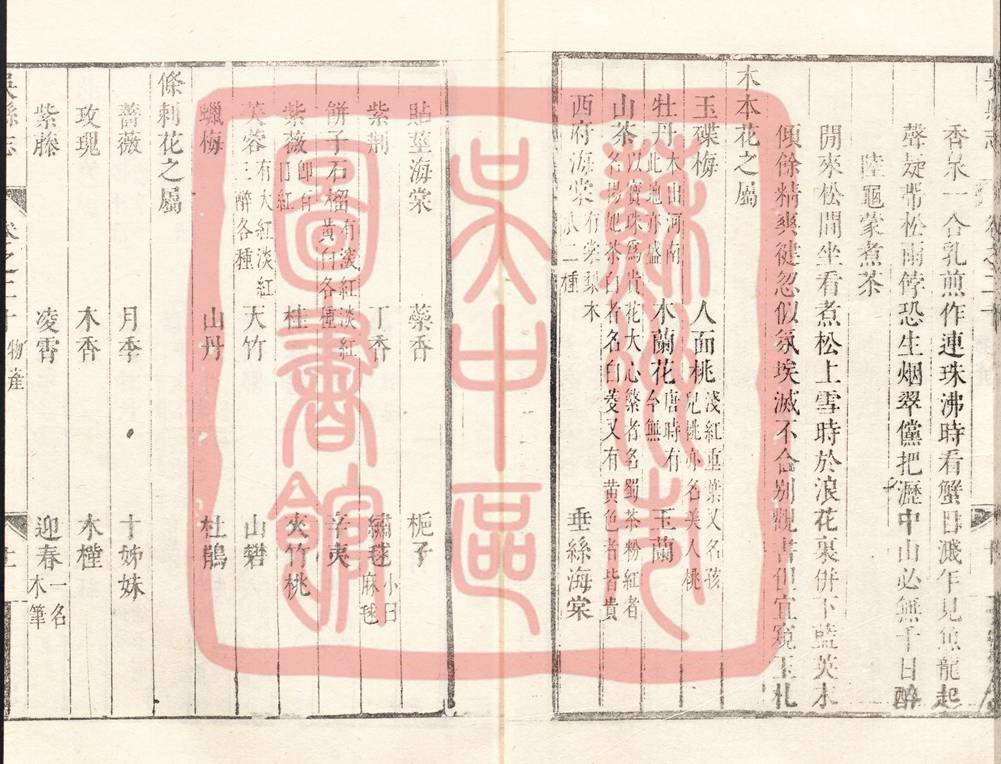 香泉一合乳煎作連珠沸時看蟹目濺乍見魚龍起
聲疑帶松雨餑恐生烟翠儻把瀝中山必無千日醉
陸龜蒙煮茶
閒來松間坐看煮松上雪時於浪花裏併下藍英末
傾餘精爽徤忽似氛埃滅不合别觀書但宜窺玉札
木本花之屬
玉碟梅 人面桃淺紅重葉又名孩兒桃亦名美人桃
牡丹本出河南此地亦盛 木蘭花唐時有今無 玉蘭
山茶以寳珠爲貴花大心繁者名蜀茶粉紅者名楊妃茶白者名白菱又有黄色者皆貴
西府海棠有棠梨木瓜二種 垂絲海棠
貼莖海棠 蘂香 梔子
紫荆 丁香 繡毬小曰麻毬
餅子石榴有淡紅淡紅黄白各種 辛夷
紫薇即百日紅 桂 夾竹桃
芙蓉有大紅淡紅三醉各種 天竹 山礬
蠟梅 山丹 杜鵑
條刺花之屬
薔薇 月季 十姊妹
玫瑰 木香 木槿
紫藤 凌霄 迎春一名木筆
吳縣志 卷之二十 物産 十一
蘇州市
吳中區
圖書館